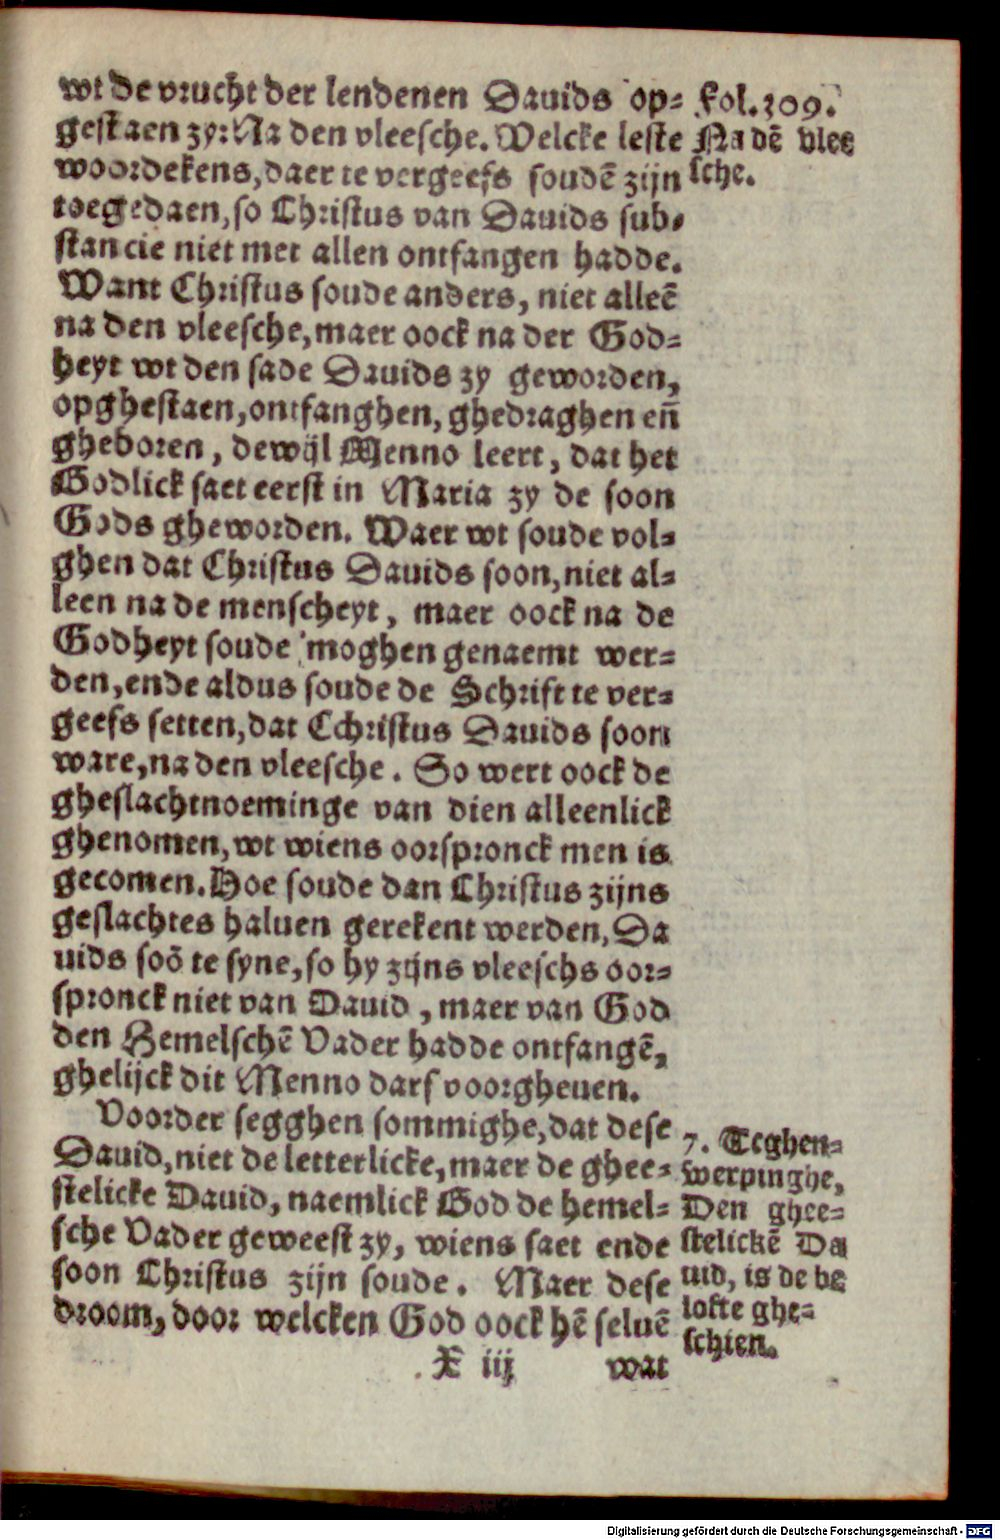 wt de vrucht der lendenen Dauids op=
gestaen zy: Na den vleesche. Welcke leste
woordekens, daer te vergeefs soudē zijn
toegedaen, so Christus van Dauids sub=
stancie niet met allen ontfangen hadde.
Want Christus soude anders, niet alleē
na den vleesche, maer oock na der God=
heyt wt den sade Dauids zy geworden,
opghestaen, ontfanghen, ghedraghen en̄
gheboren, dewijl Menno leert, dat het
Godlick saet eerst in Maria zy de soon
Gods gheworden. Waer wt soude vol=
ghen dat Christus Dauids soon, niet al=
leen na de menscheyt, maer oock na de
Godheyt soude moghen genaemt wer=
den, ende aldus soude de Schrift te ver=
geefs setten, dat Cchristus Dauids soon
ware, na den vleesche. So wert oock de
gheslachtnoeminge van dien alleenlick
ghenomen, wt wiens oorspronck men is
gecomen. Hoe soude dan Christus zijns
geslachtes haluen gerekent werden, Da
uids soō te syne, so hy zijns vleeschs oor=
spronck niet van Dauid, maer van God
den Hemelschē Vader hadde ontfangē,
ghelijck dit Menno darf voorgheuen.
Voorder segghen sommighe, dat dese
Dauid, niet de letterlicke, maer de ghee=
stelicke Dauid, naemlick God de hemel=
sche Vader geweest zy, wiens saet ende
soon Christus zijn soude. Maer dese
droom, door welcken God oock hē seluē
X iij wat
Fol. 309.
Na dē vlee
sche.
7. Teghen=
werpinghe,
Den ghee=
stelickē Da
uid, is de be
lofte ghe=
schien.
Digitalisierung gefördert durch die Deutsche Forschungsgemeinschaft - DFG